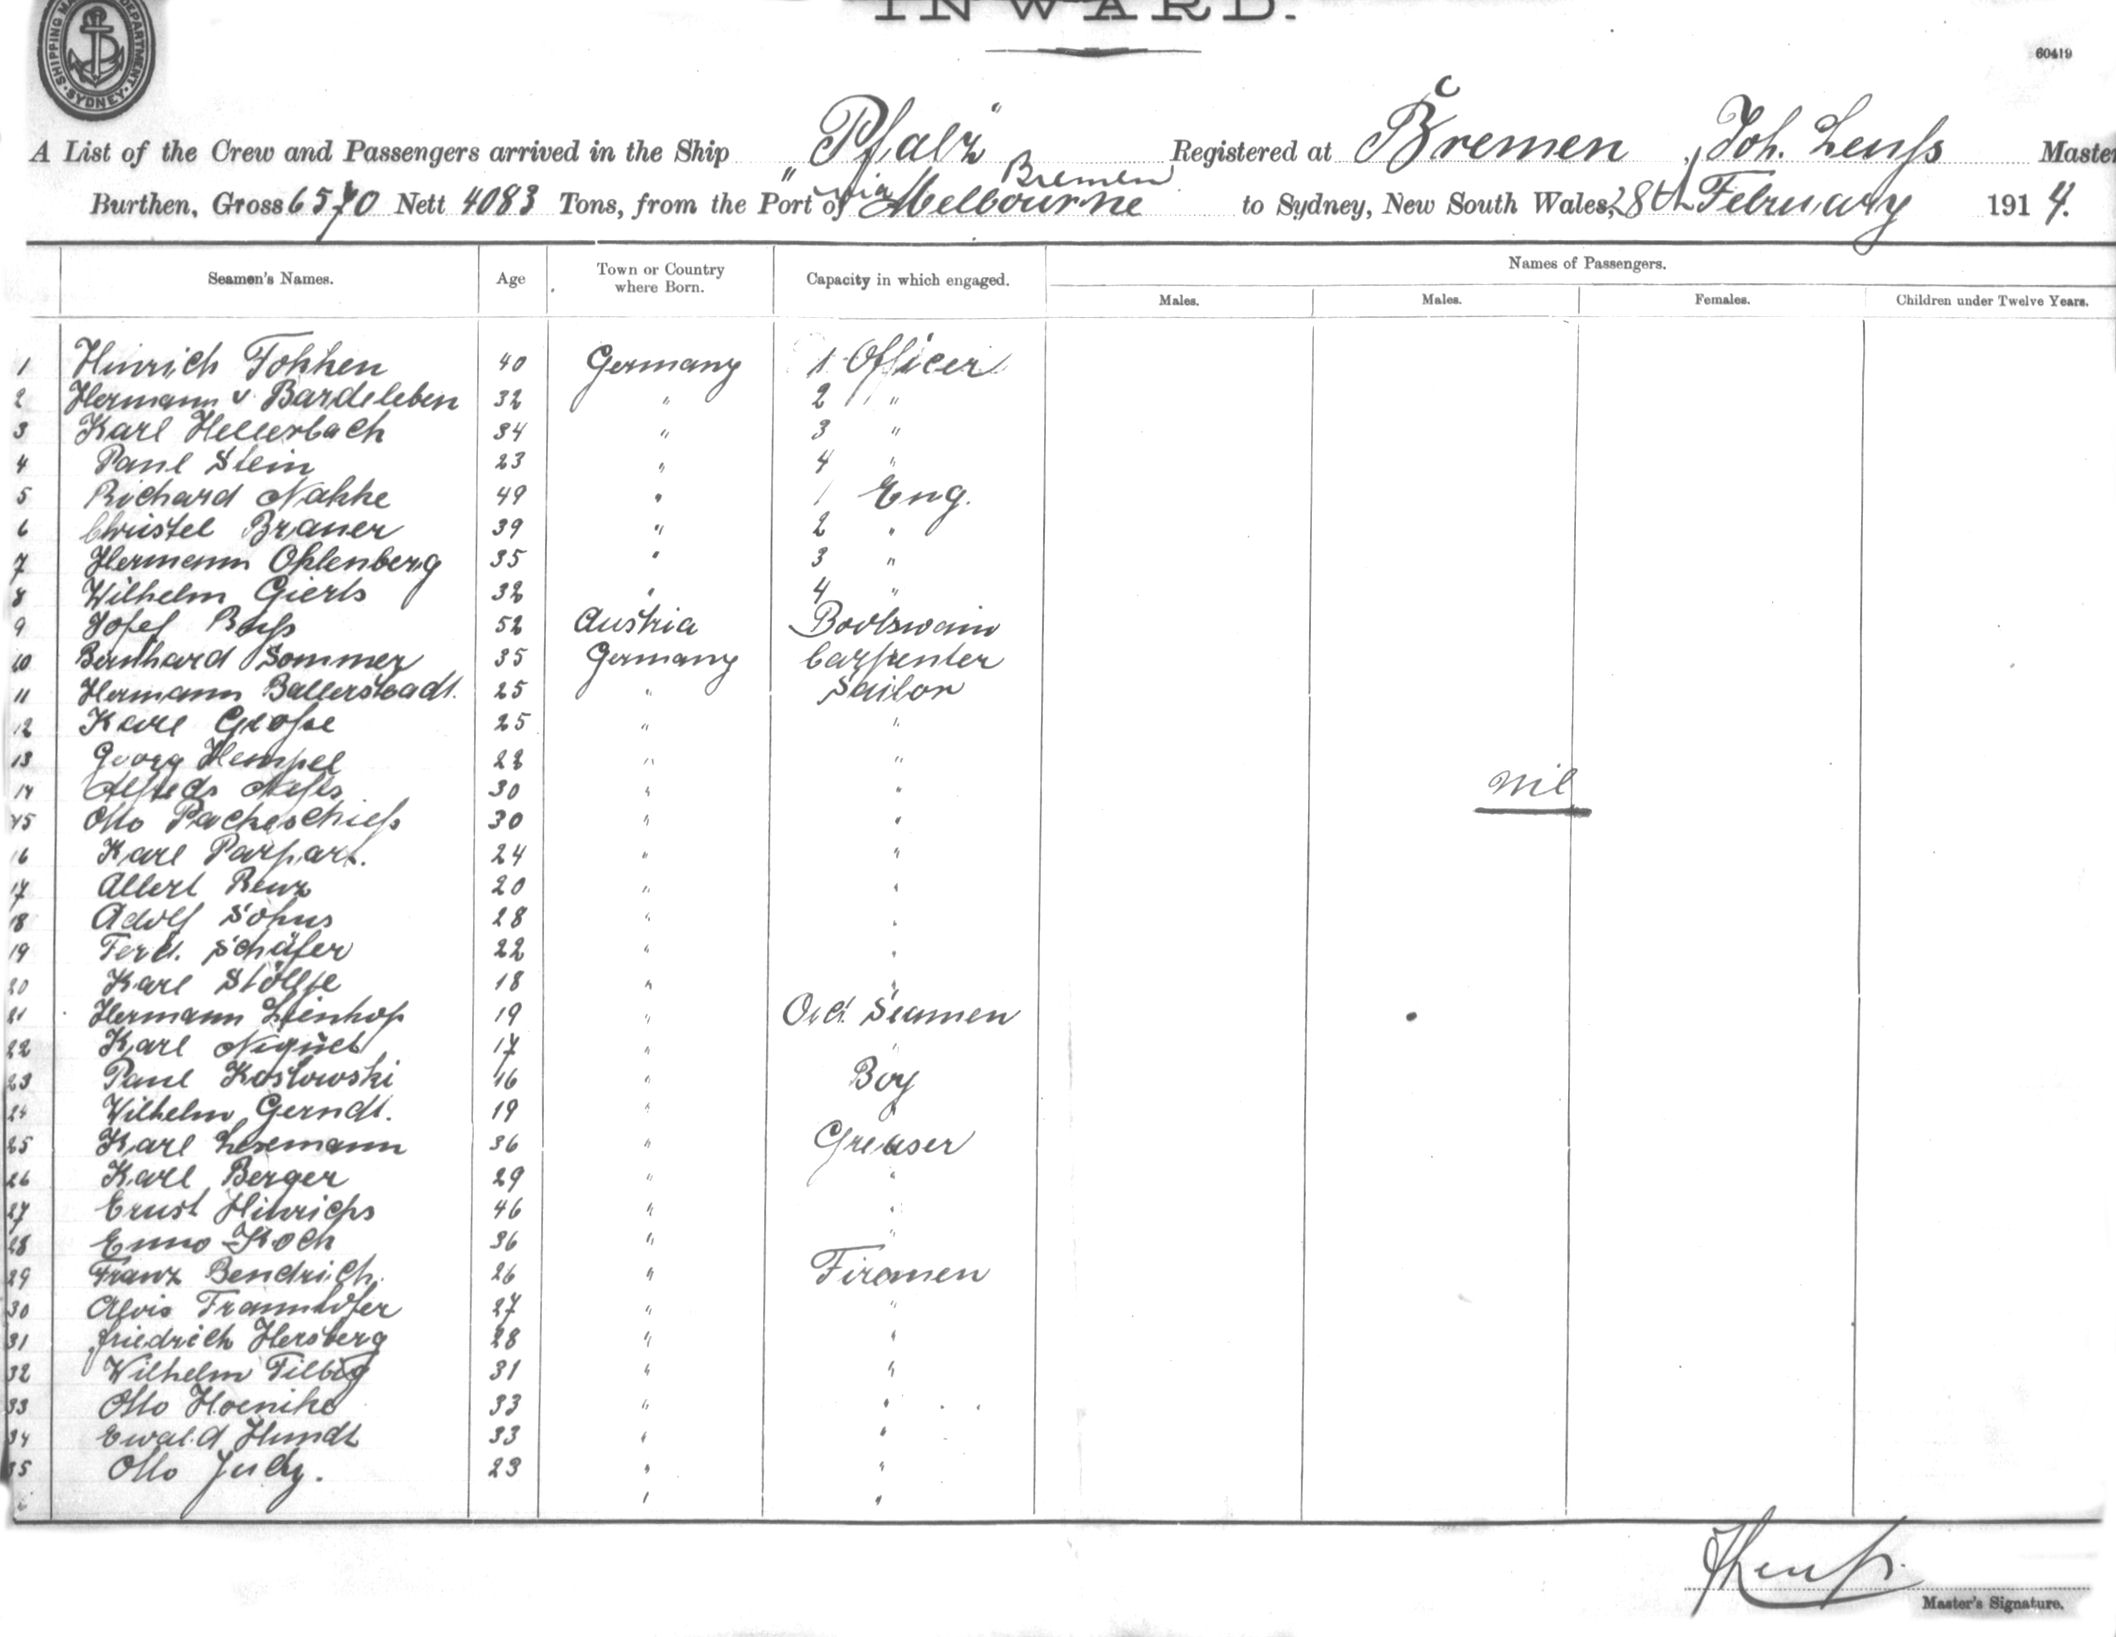 INWARD.
SHIPPING MA DEPARTMENT SYDNEY
60419
A List of the Crew and Passengers arrived in the Ship "Pfalz" Registered at Bremen, Joh. Leuß Master
Burthen, Gross 6570 Nett 4083 Tons, from the Port of Bremen via Melbourne to Sydney, New South Wales, 28th February 1914.
Seamen's Names. Age Town or Country where Born. Capacity in which engaged. Names of Passengers.
Males. Males. Females. Children under Twelve Years.
1 Hinrich Fokken 40 Germany 1 Officer
2 Hermann v Bardeleben 32 " 2 "
3 Karl Hellerbach 34 " 3 "
4 Paul Stein 23 " 4 "
5 Richard Nakke 49 " 1 Eng.
6 Christel Brauer 39 " 2 "
7 Hermann Ohlenberg 35 " 3 "
8 Wilhelm Gierls 32 " 4 "
9 Josef Buß 52 Austria Bootswain
10 Bernhard Sommer 35 Germany Carpenter
11 Hermann Ballerstaadt. 25 " Sailor
12 Karl Große 25 " "
13 Georg Hempel 22 " "
14 30 " "
nil
15 Otto 30 " "
16 Karl Parpart. 24 " "
17 Albert Renz 20 " "
18 Adolf Sohns 28 " "
19 Ferd. Schäfer 22 " "
20 Karl Stölte 18 " "
21 Hermann Lienhop 19 " Ord. Seamen
22 Karl Niquet 17 " "
23 Paul Koslowski 16 " Boy
24 Wilhelm Gerndt. 19 " "
25 Karl Lesemann 36 " Greaser
26 Karl Berger 29 " "
27 Ernst Hinrichs 46 " "
28 Enno Koch 36 " "
29 Franz Bendrich. 26 " Firemen
30 Alois Traunhofer 27 " "
31 Friedrich Hersberg 28 " "
32 Wilhelm Filbig 31 " "
33 Otto Hoenike 33 " "
34 Ewald Hundt 33 " "
35 Otto Judy. 23 " "
" "
JLeuß.
Master's Signature.